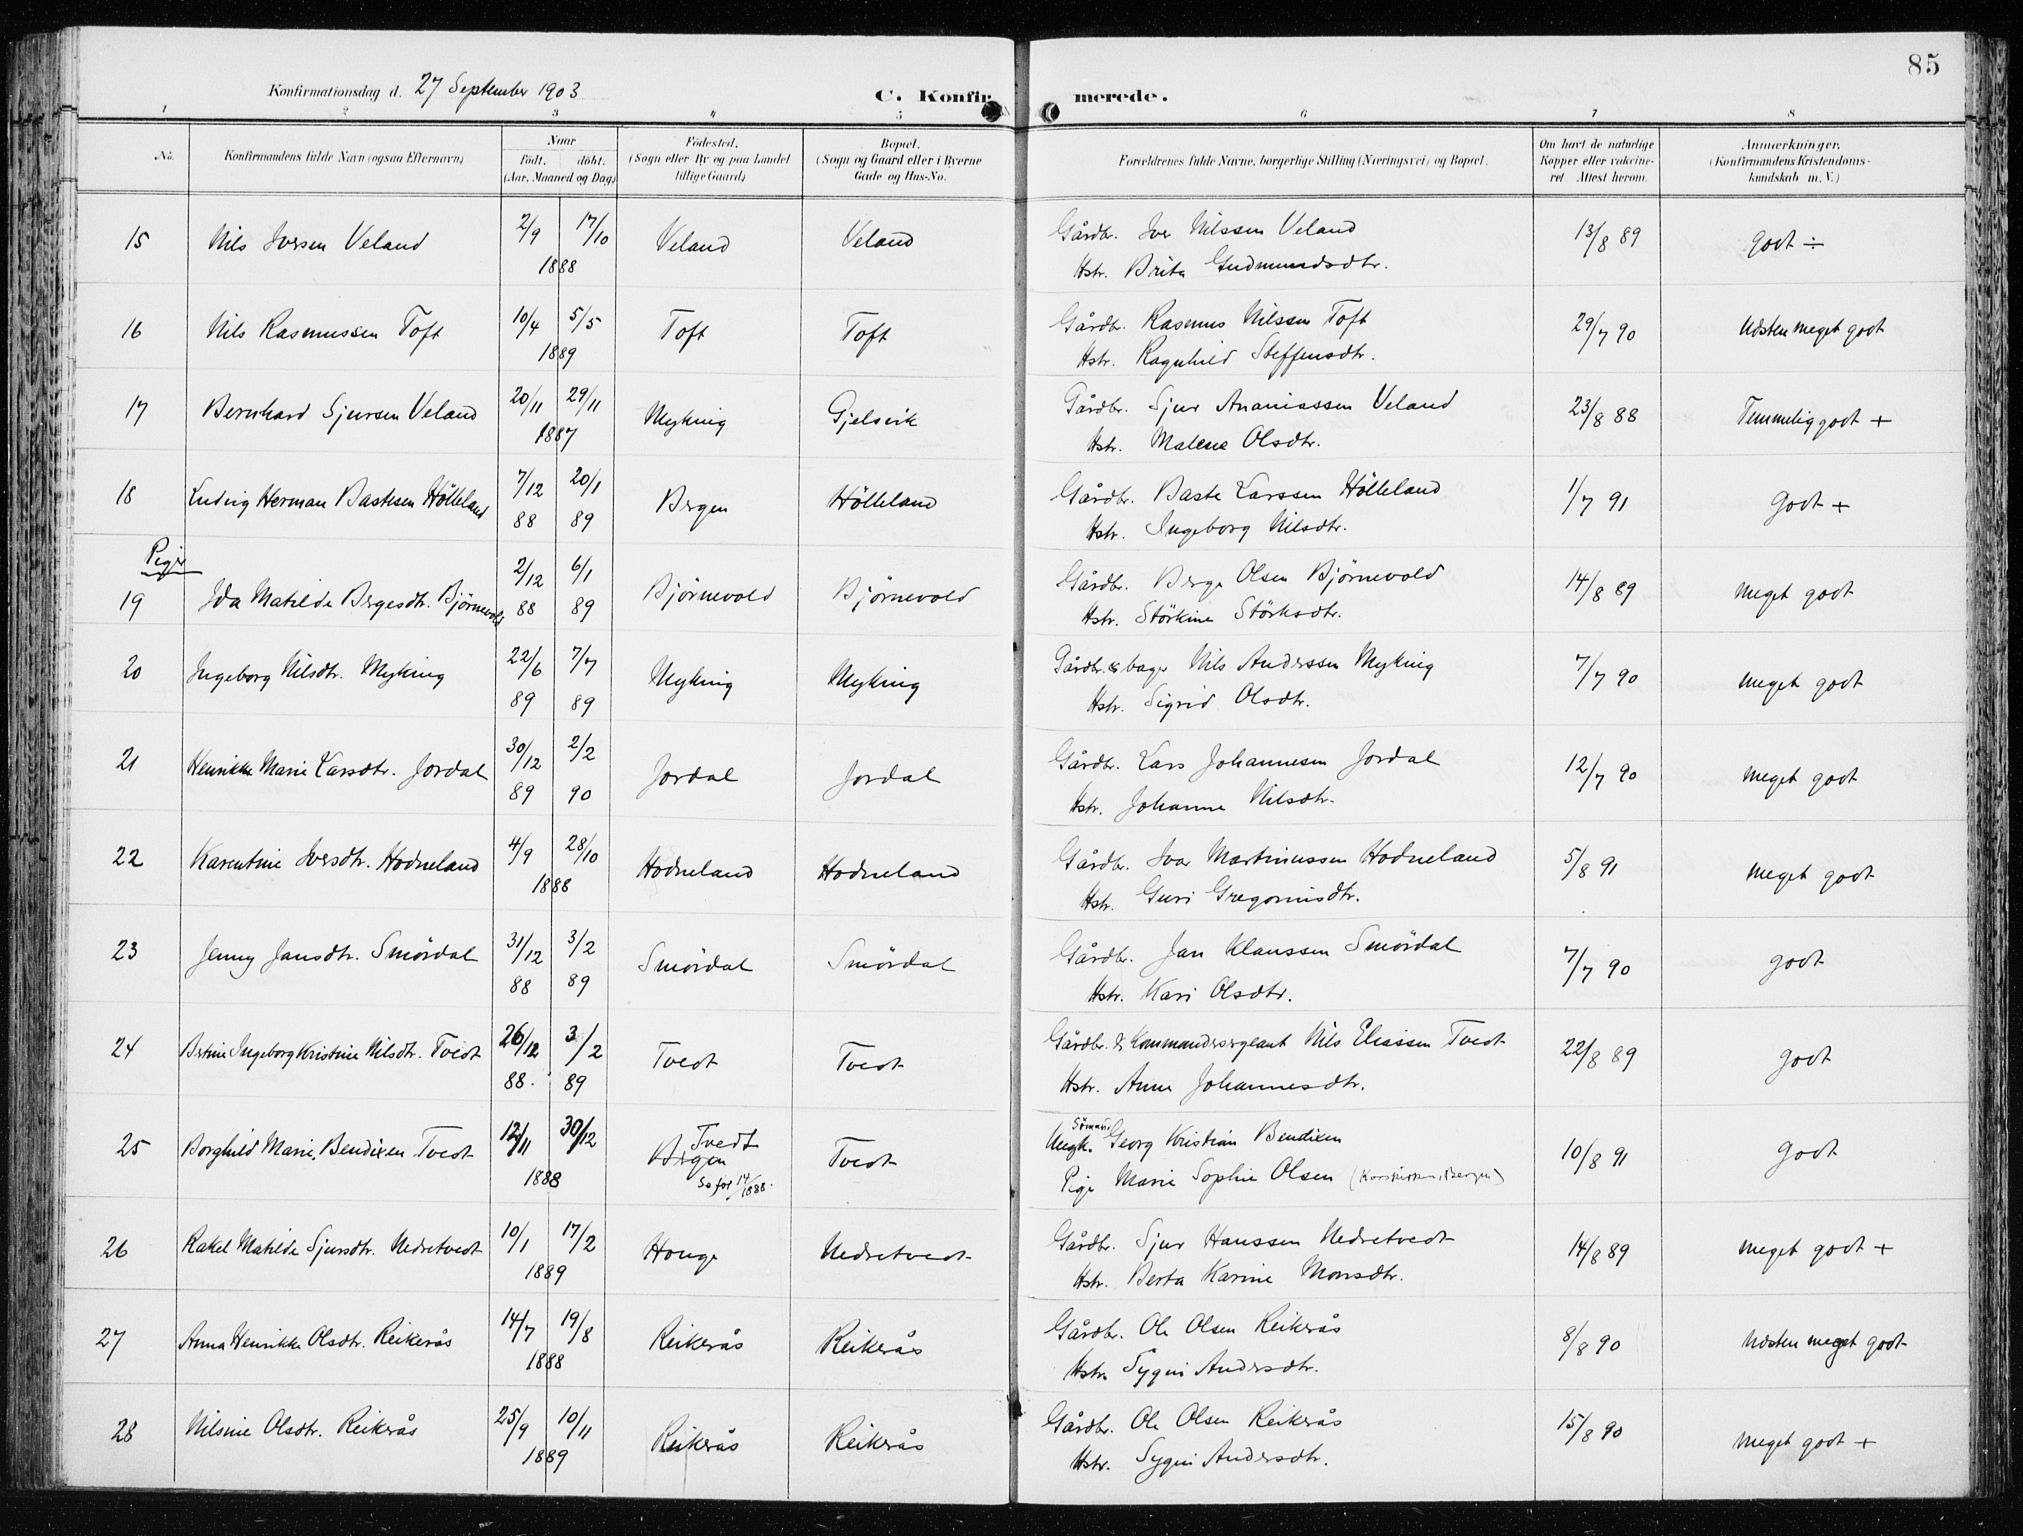 85
Konfirmationsdag d. 27 September 1903
C. Konfirmerede.
1 2 3 4 5 6 7 8
No. Konfirmandens fulde Navn (ogsaa Efternavn) Naar født. døbt. (Aar, Maaned og Dag) Fødested. (Sogn eller By og paa Landet tillige Gaard) Bopæl. (Sogn og Gaard eller i Byerne Gade og Hus-No. Forældrenes fulde Navne, borgerlige Stilling (Næringsvei) og Bopæl. Om havt de naturlige Kopper eller vakcineret. Attest herom. Anmærkninger. (Konfirmandens Kristendomskundskab m. V.)
15 Nils Iversen Veland 2/9 17/10 1888 Veland Veland Gårdbr. Iver Nilssen Veland 13/8 89 godt ÷
Hstr. Brita Gudmundsdtr.
16 Nils Rasmussen Toft 10/4 5/5 1889 Toft Toft Gårdbr. Rasmus Nilssen Toft 29/7 90 Næsten meget godt
Hstr. Ragnhild Steffensdtr.
17 Bernhard Sjursen Veland 20/11 29/11 1887 Myking Gjelsvik Gårdbr. Sjur Ananiassen Veland 23/8 88 Temmelig godt +
Hstr. Malene Olsdtr.
18 Ludvig Herman Bastesen Hölleland 7/12 88 20/1 89 Bergen Hölleland Gårdbr. Baste Larssen Hölleland 1/7 91 Godt +
Hstr. Ingeborg Nilsdtr.
Piger
19 Ida Matilde Bergesdtr. Bjørnevold 2/12 88 6/1 89 Bjørnevold Bjørnevold Gårdbr. Berge Olsen Bjørnevold 14/8 89 meget godt
Hstr. Störkine Störksdtr.
20 Ingeborg Nilsdtr. Myking 22/6 89 7/7 89 Myking Myking Gårdbr. & bager Nils Anderssen Myking 7/7 90 meget godt
Hstr. Sigrid Olsdtr.
21 Henrikke Marie Larsdtr. Jordal 30/12 89 2/2 90 Jordal Jordal Gårdbr. Lars Johannesen Jordal 12/7 90 meget godt
Hstr. Johanne Nilsdtr.
22 Karentine Iversdtr. Hodneland 4/9 28/10 1888 Hodneland Hodneland Gårdbr. Ivar Martinussen Hodneland 5/8 91 meget godt
Hstr. Guri Gregoriusdtr.
23 Jenny Jansdtr. Smördal 31/12 88 3/2 89 Smördal Smördal Gårdbr. Jan Klaussen Smördal 7/7 90 godt
Hstr. Kari Olsdtr.
24 Bertine Ingeborg Kristine Nilsdtr. Tvedt 26/12 88. 3/2 89 Tvedt Tvedt Gårdbr. & Kommandersergeant Nils Eliassen Tvedt 22/8 89 godt
Hstr. Anna Johannesdtr.
25 Borghild Marie Bendixen Tvedt 12/11 30/12 1888 Tvedt Bergen Se for 14/1888. Tvedt Sömand Ungk. Georg Kristian Bendixen 10/8 91 Godt
Pige Marie Sophie Olsen (Korskirken, Bergen)
26 Rakel Matilde Sjursdtr. Nedretvedt 10/1 17/2 1889 Houge Nedretvedt Gårdbr. Sjur Hanssen Nedretvedt 14/8 89 meget godt +
Hstr. Berta Karine Monsdtr.
27 Anna Henrikke Olsdtr. Reikerås 14/7 19/8 1888 Reikerås Reikerås Gårdbr. Ole Olsen Reikerås 8/8 90 Næsten meget godt
Hstr. Sygni Andersdtr.
28 Nilsine Olsdtr. Reikerås 25/9 10/11 1889 Reikerås Reikerås Gårdbr. Ole Olsen Reikerås 15/8 90 meget godt +
Hstr. Sygni Andersdtr.